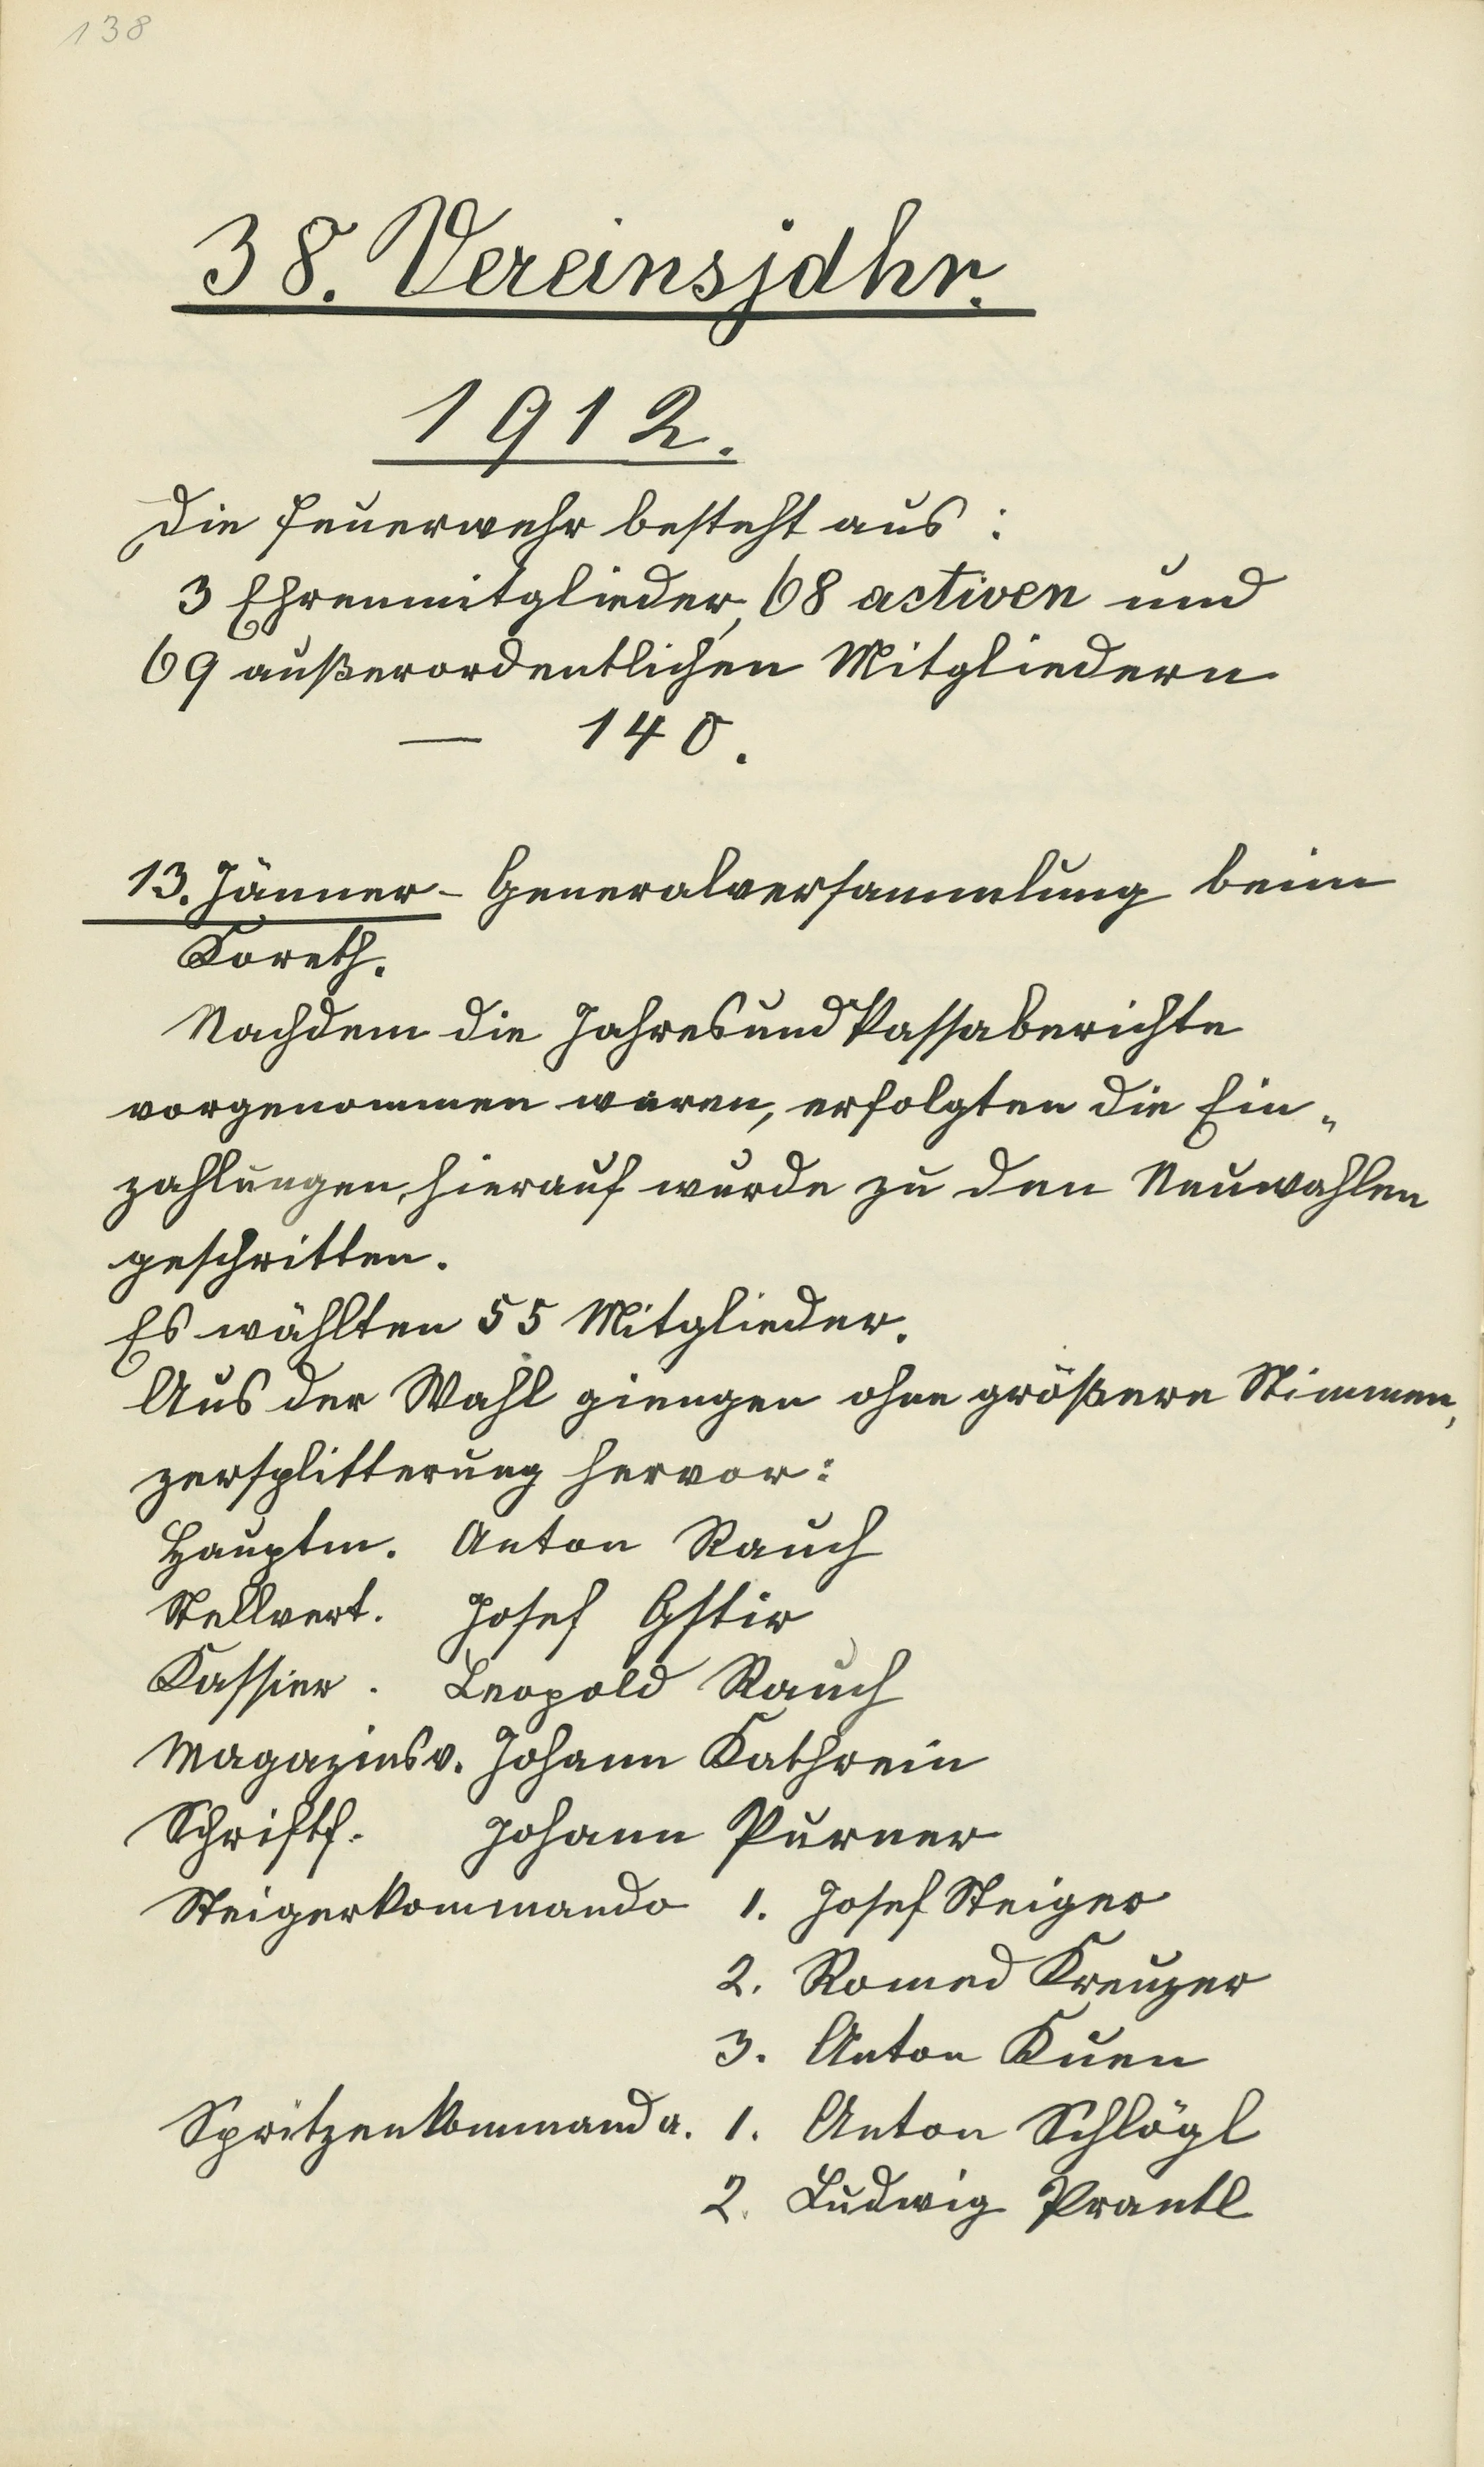 138
38. Vereinsjahr.
1912.
Die Feuerwehr besteht aus :
3 Ehrenmitglieder, 68 activen und
69 außerordentlichen Mitgliedern
— 140.
13. Jänner - Generalversammlung beim
Koreth.
Nachdem die Jahres und Kassaberichte
vorgenommen waren, erfolgten die Ein„
zahlungen, hierauf wurde zu den Neuwahlen
geschritten.
Es wählten 55 Mitglieder.
Aus der Wahl giengen ohne größere Stimmen„
zersplitterung hervor:
Hauptm. Anton Rauch
Stellvert. Josef Gstir
Kassier . Leopold Rauch
Magazinsv. Johann Kathrein
Schriftf. Johann Purner
Steigerkommando 1. Josef Steiger
2. Romed Kreuzer
3. Anton Kuen
Spritzenkommanda. 1. Anton Schlögl
2. Ludwig Prantl